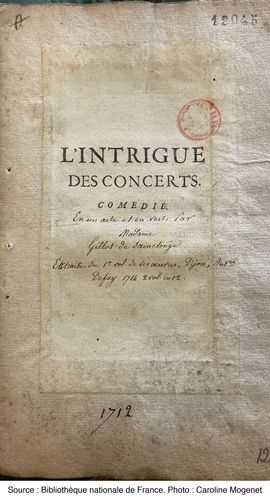 12045
L'INTRIGUE
DES CONCERTS.
COMEDIE.
En un acte et en vers. Par
Madame
Gillot de Sainctonge
Extraite du 1er vol. de ses œuvres, Dijon,
Defay 1714 2 vol. in 12.
1712
12
Source : Bibliothèque nationale de France. Photo : Caroline Mogenet